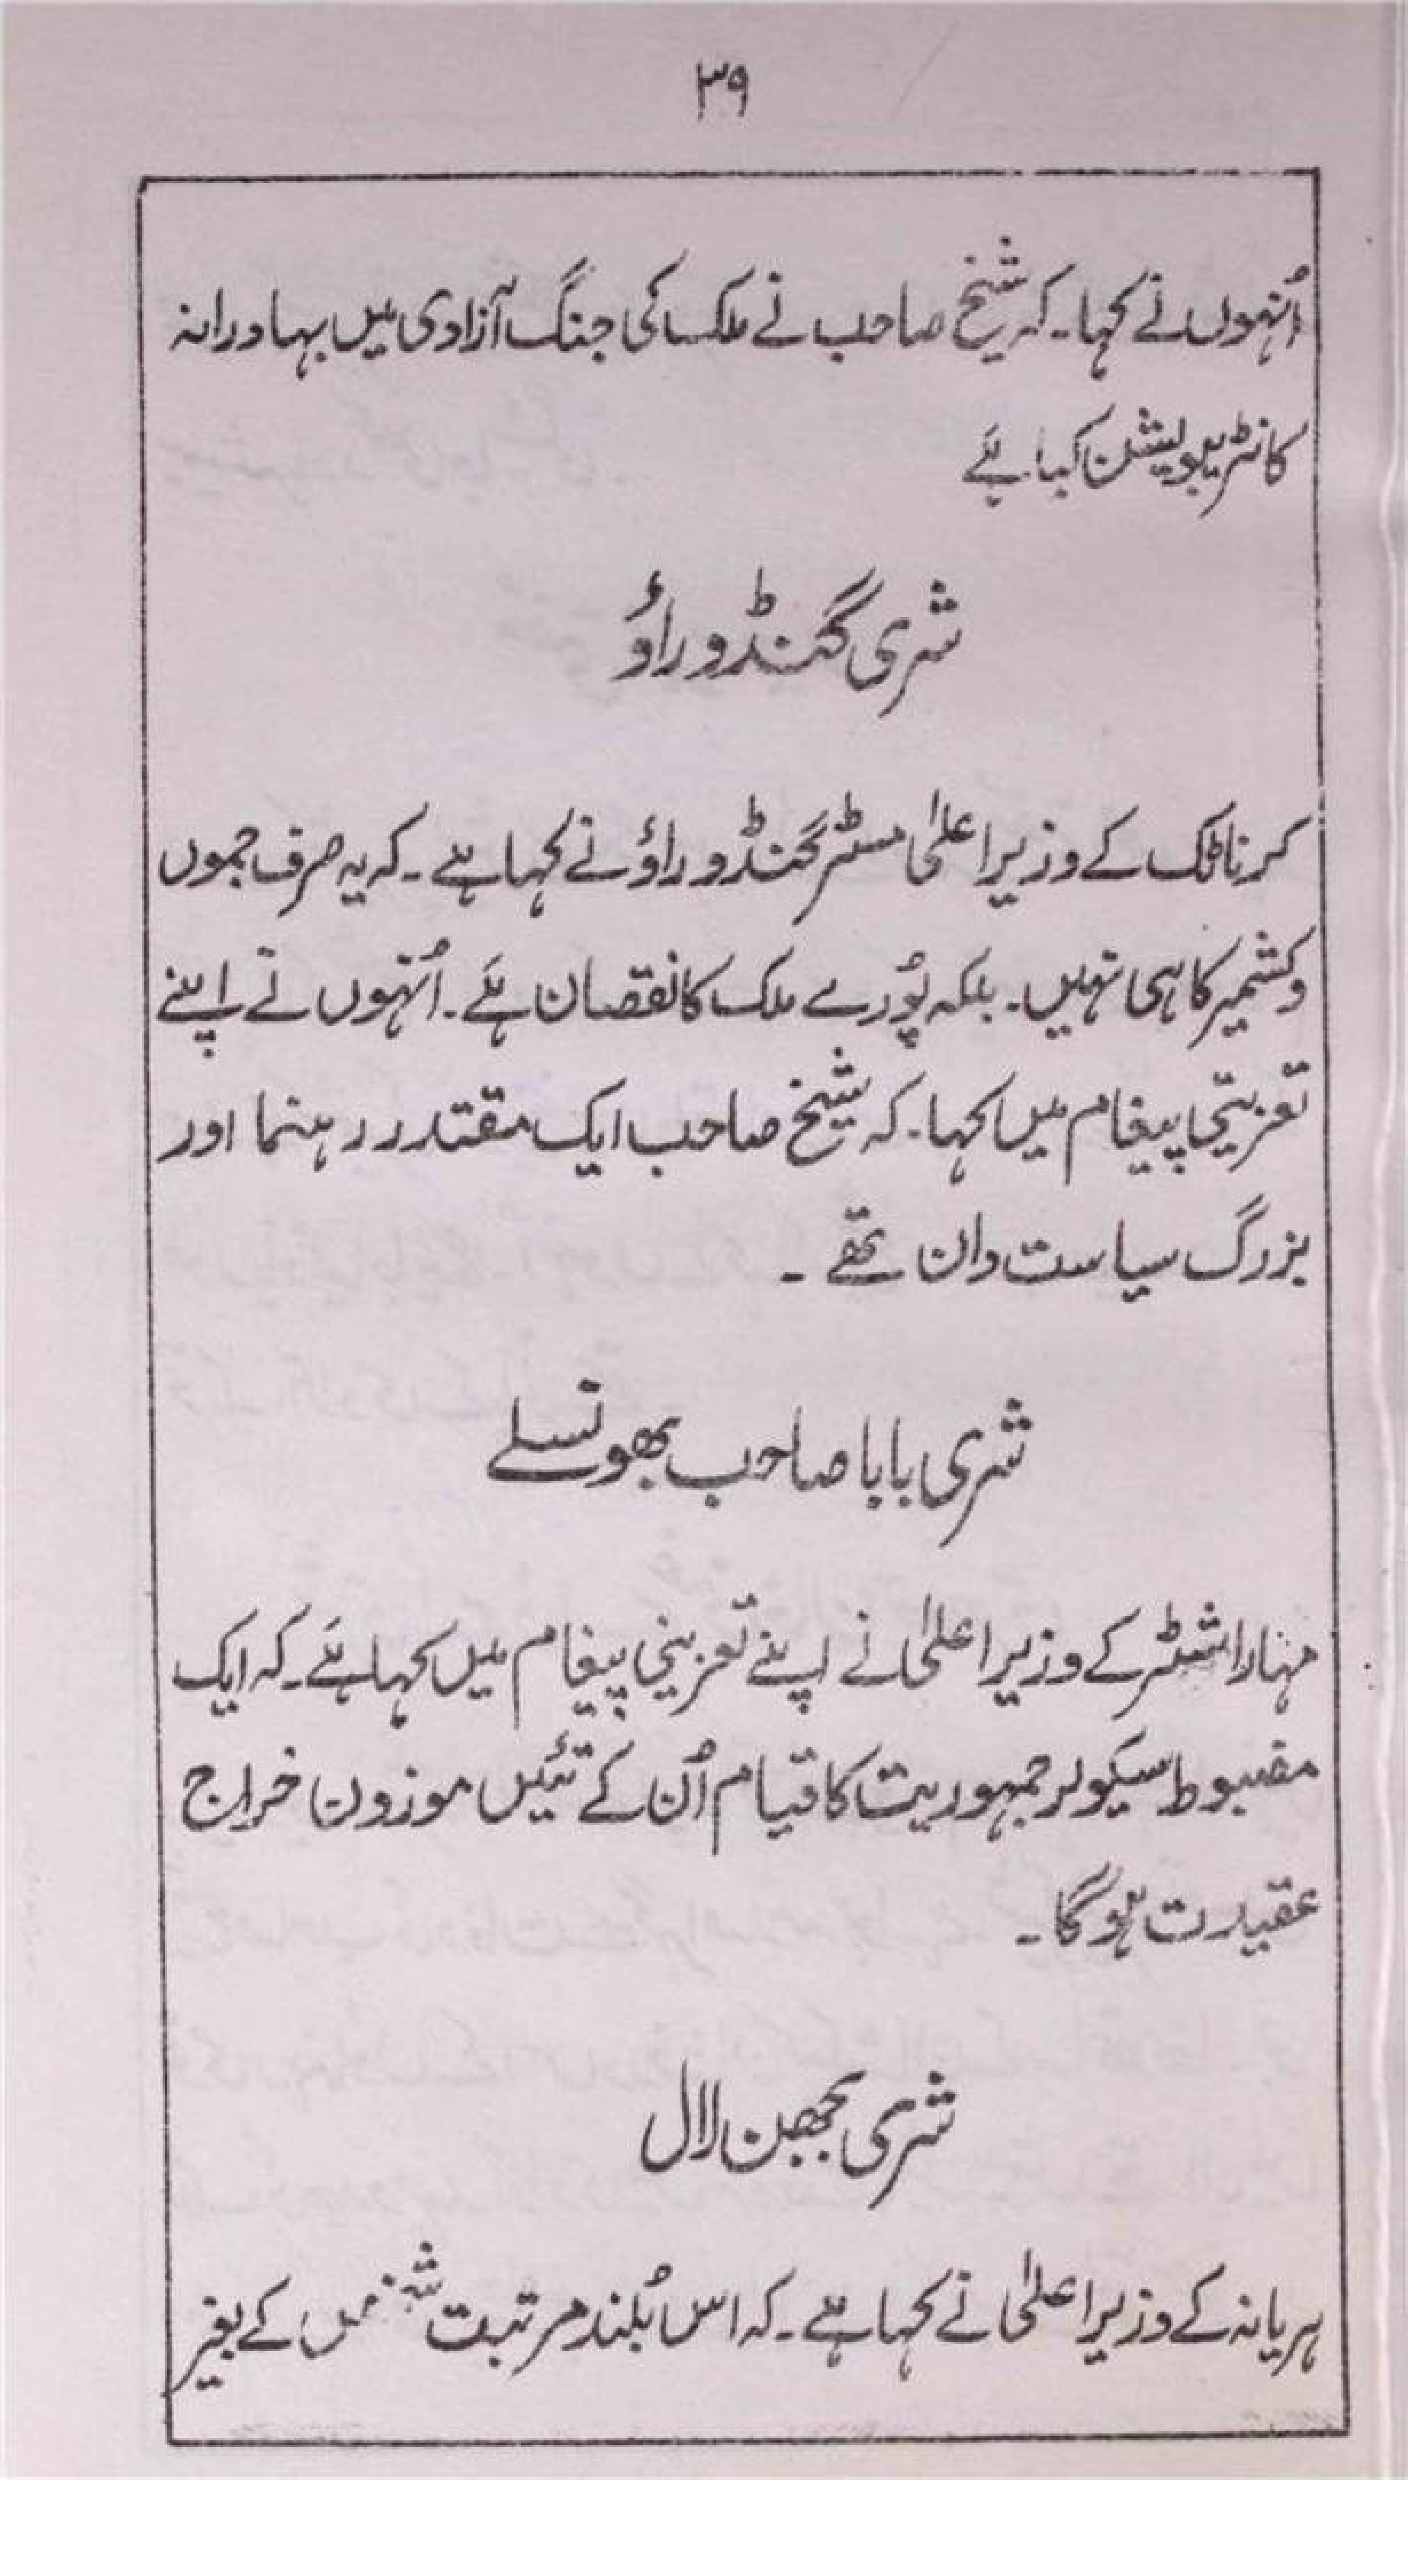 ۳۹
اُنہوں نے کہا۔ کہ شیخ صاحب نے ملک کی جنگ آزادی میں بہادرانہ
کانٹریبویشن کیا ہے
شری گنڈو راؤ
کرناٹک کے وزیر اعلیٰ مسٹر گنڈو راؤ نے کہا ہے ۔ کہ یہ صرف جموں
و کشمیر کا ہی نہیں۔ بلکہ پُورے ملک کا نقصان ہے۔ اُنہوں نے اپنے
تعزیتی پیغام میں کہا۔ کہ شیخ صاحب ایک مقتدر رہنما اور
بزرگ سیاست دان تھے ۔
شری بابا صاحب بھونسلے
مہاراشٹر کے وزیر اعلیٰ نے اپنے تعزیتی پیغام میں کہا ہے۔ کہ ایک
مضبوط سیکولر جمہوریت کا قیام اُن کے تئیں موزون خراج
عقیدت ہوگا ۔
شری بھجن لال
ہریانہ کے وزیر اعلیٰ نے کہا ہے ۔ کہ اس بُلند مرتبت کے بغیر